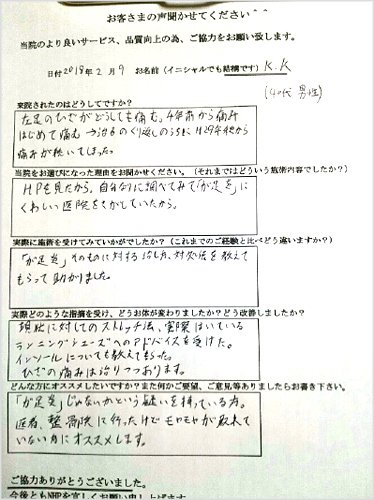 お客さまの声聞かせてください^^
当院のより良いサービス、品質向上の為、ご協力をお願い致します。
日付2018年2月9 お名前(イニシャルでも結構です) K.K
(40代 男性)
来院されたのはどうしてですか?
左足のひざがどうしても痛む。4年前から痛み
はじめて痛む→治るのくり返しのうちにH29年秋から
痛みが続いてしまった。
当院をお選びになった理由をお聞かせください。(それまではどういう施術内容でしたか?)
HPを見たから。自分なりに調べてみて「が足炎」に
くわしい医院をさがしていたから。
実際に施術を受けてみていかがでしたか?(これまでのご経験と比べどう違いますか?)
「が足炎」そのものに対する治し方、対処法を教えて
もらって助かりました。
実際どのような指摘を受け、どうお体が変わりましたか?どう改善しましたか?
現状に対してのストレッチ法、実際はいている
ランニングシューズへのアドバイスを受けた。
インソールについても教えてもらった。
ひざの痛みは治りつつあります。
どんな方にオススメしたいですか?また何かご要望、ご意見等ありましたらお書き下さい。
「が足炎」じゃないかという疑いを持っている方。
医者、整骨院に行ったけどモヤモヤが取れて
いない方にオススメします。
ご協力ありがとうございました。
今後ともNHPを宜しくお願い申し上げます。